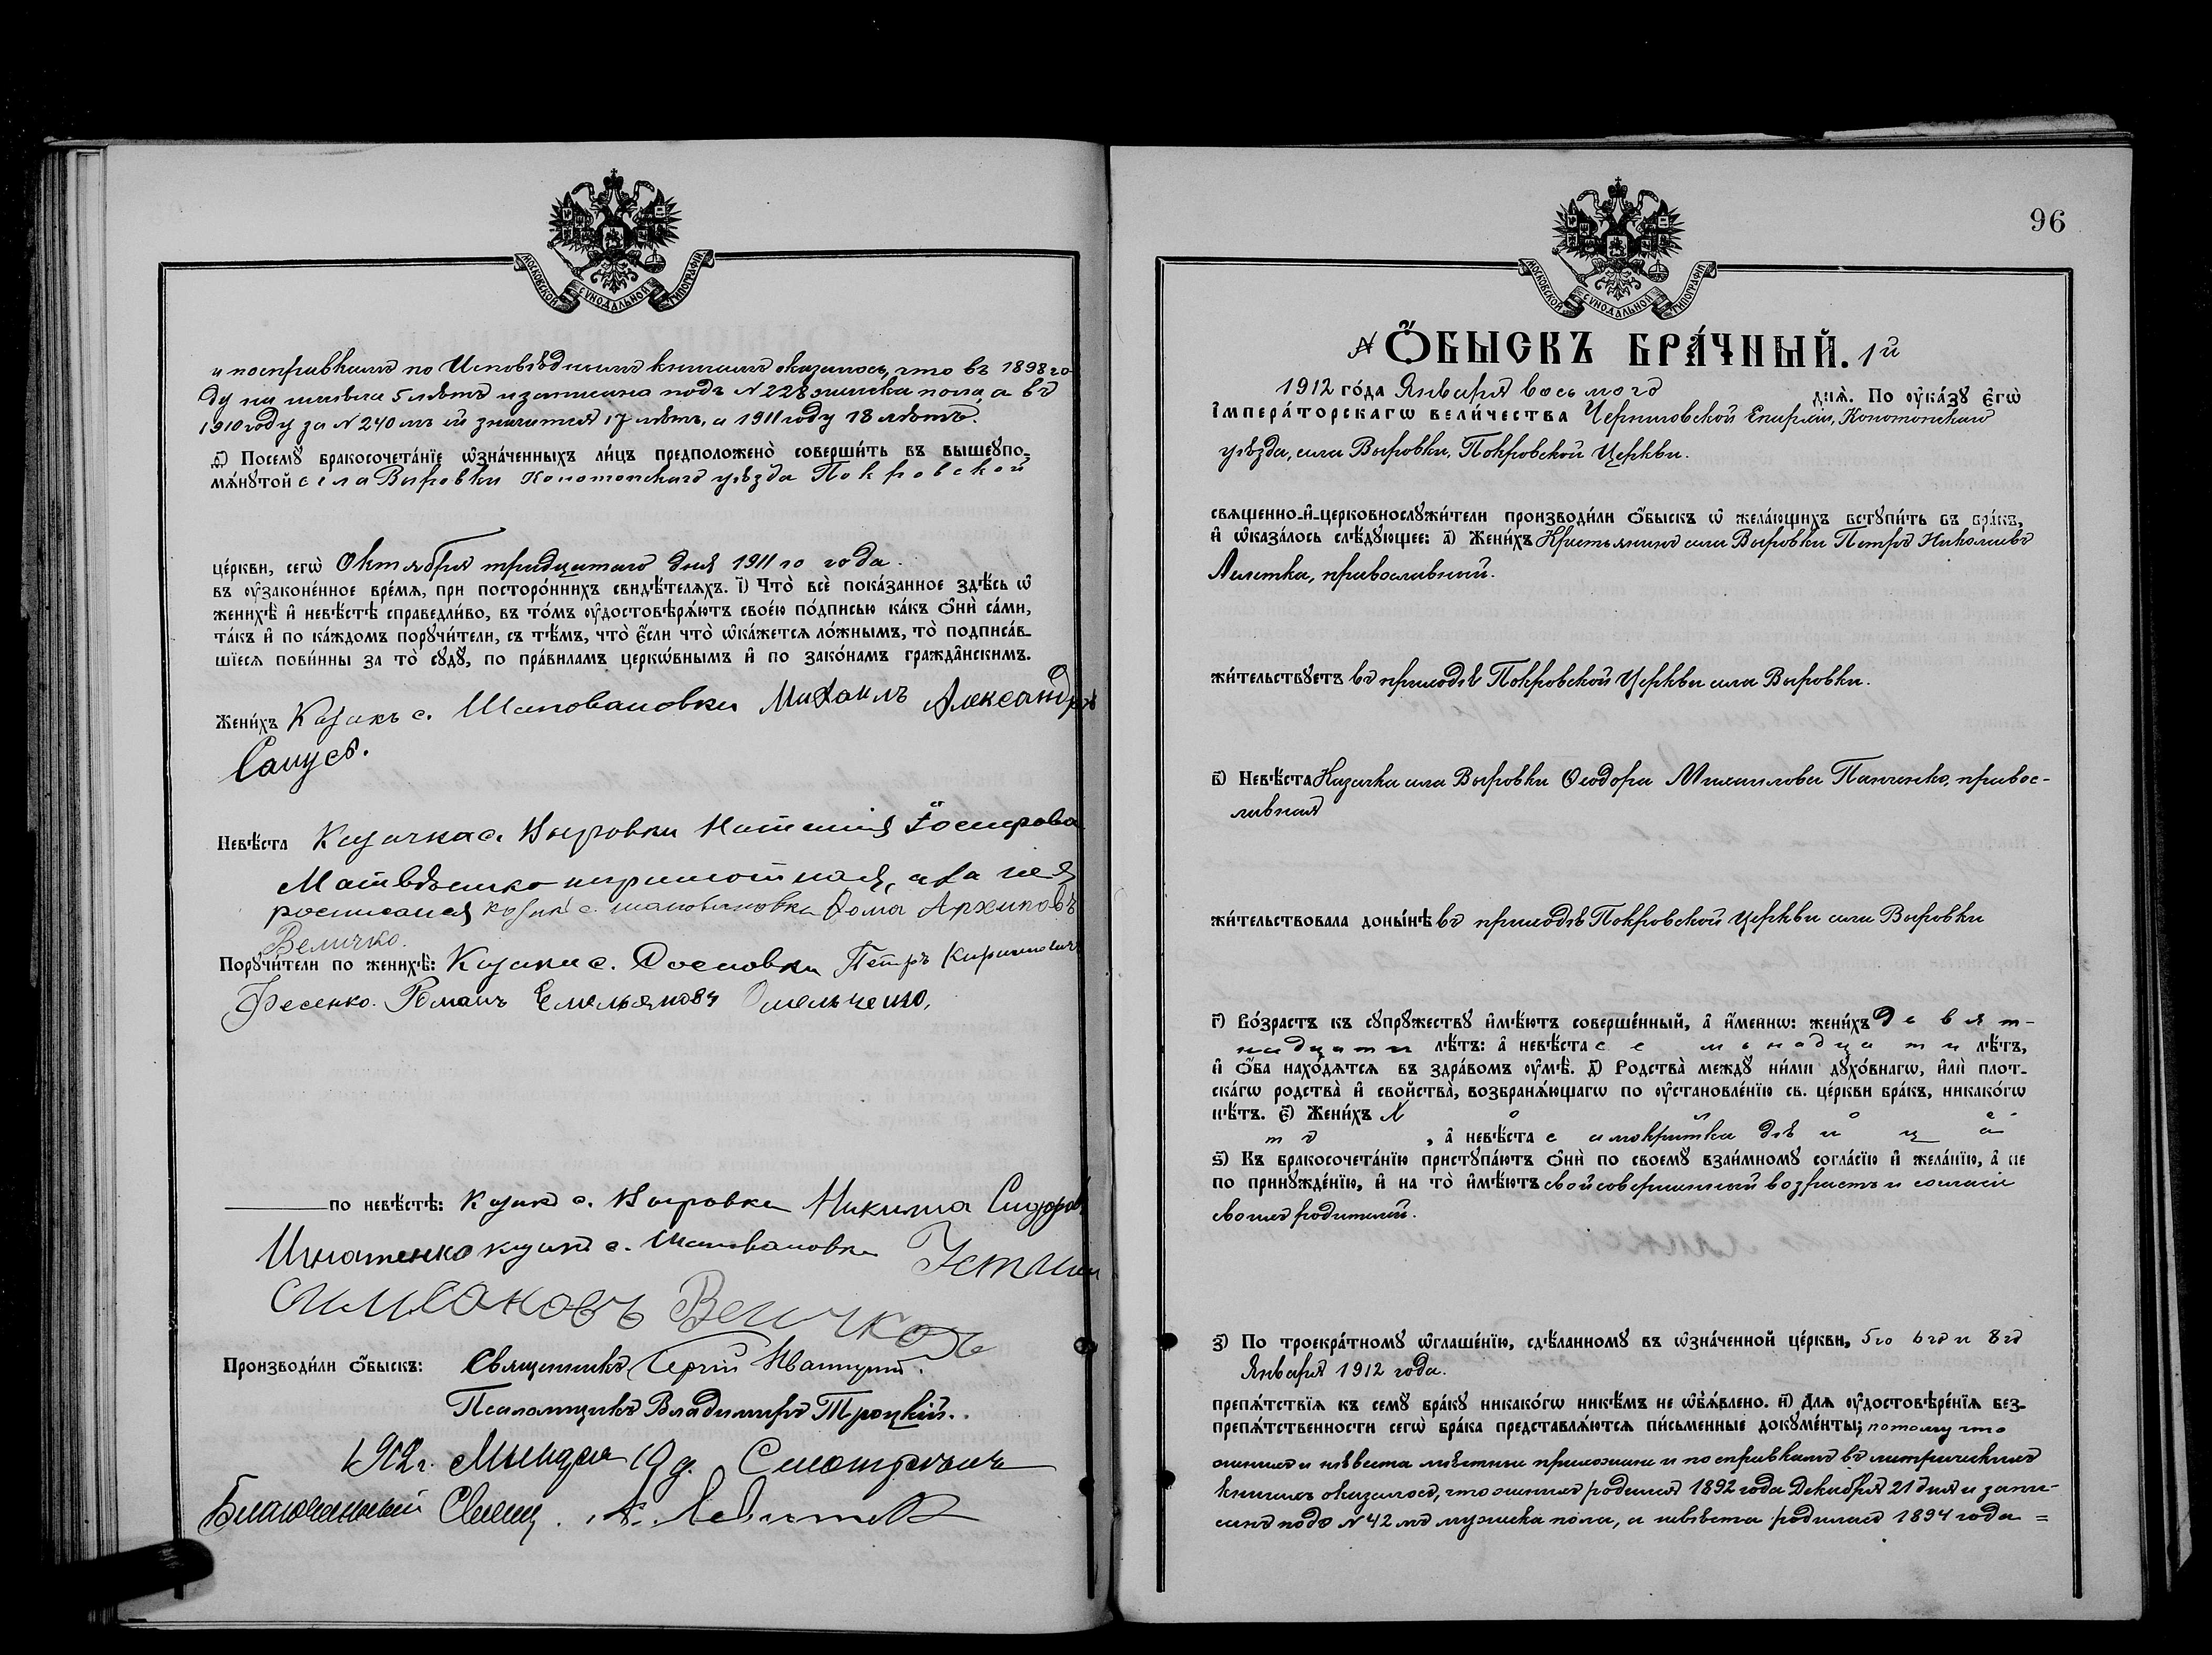 МОСКОВСКОЙ СѴНОДАЛЬНОЙ ТИПОГРАФІИ
и по справкамъ по Исповѣднымъ книгамъ оказалось, что въ 1898 го-
ду имѣла 5 лѣтъ и записана подъ № 228 женска пола, а въ
1910 году за № 240 мъ ей значится 17 лѣтъ, а 1911 году 18 лѣтъ.
ѳ҃) Посемꙋ̀ бракосочета́нїе ѡ҆зна́ченныхъ ли́цъ предположено̀ соверши́ть въ вышеꙋпо-
мѧ́нꙋтой села Выровки Конотопскаго уѣзда Покровской
це́ркви, сегѡ̀ Октября тридцатаго дня 1911 го года.
въ ᲂу҆законе́нное вре́мѧ, при посторо́ннихъ свидѣ́телѧхъ. і҃) Что̀ всѐ пока́занное здѣ́сь ѡ҆
женихѣ̀ и҆ невѣ́стѣ справедли́во, въ то́мъ ᲂу҆достовѣрѧ́ютъ свое́ю по́дписью ка́къ ѻ҆нѝ са́ми,
та́къ и҆ по ка́ждомъ порꙋчи́тели, съ тѣ́мъ, что̀ є҆́сли что̀ ѡ҆ка́жетсѧ ло́жнымъ, то̀ подписа́в-
шїесѧ пови́нны за то̀ сꙋдꙋ̀, по пра́виламъ церко́внымъ и҆ по зако́намъ гражда̑нскимъ.
Жени́хъ Козакъ с. Шаповаловки Михаилъ Александр
Сапусъ.
Невѣ́ста Козачка с. Выровки Наталія
Матвѣенко неграмотная, а за нея
росписался козакъ с. шаповаловки Ѳома Архиповъ
Величко.
Порꙋчи́тели по женихѣ̀: Козаки с. Сосновки Петръ Кириловичъ
Фесенко. Романъ Емельяновъ Омельченко,
по невѣ́стѣ: Козакъ с. Выровки Никита Сидоровъ
Игнатенко козакъ с. Шаповаловки Устинъ
Величко
Производи́ли ѻ҆́быскъ: Священникъ Сергій Иваницкій.
Псаломщикъ Владиміръ Троцкій.
1912 г. 19 д. Смотрѣлъ
Благочинный Священ. А.
96
МОСКОВСКОЙ СѴНОДАЛЬНОЙ ТИПОГРАФІИ
№ Ѻ҆́БЫСКЪ БРА́ЧНЫЙ. 1й
1912 го́да Января восьмого днѧ̀. По ᲂу҆ка́зꙋ Є҆гѡ̀
І҆мпера́торскагѡ вели́чества Черниговской Епархіи, Конотопскаго
уѣзда, села Выровки, Покровской Церкви.
свѧщенно-и҆-церковнослꙋжи́тели производи́ли ѻ҆́быскъ ѡ҆ жела́ющихъ встꙋпи́ть въ бра́къ,
и҆ ѡ҆каза́лось слѣ́дꙋющее: а҃) Жени́хъ Крестьянинъ села Выровки Петръ Николаевъ
православный.
жи́тельствꙋетъ въ приходѣ Покровской Церкви села Выровки.
в҃) Невѣ́ста Казачка села Выровки Ѳеодора Михаилова Панченко, правос-
лавная
жи́тельствовала доны́нѣ въ приходѣ Покровской Церкви села Выровки
г҃) Во́зрастъ къ сꙋпрꙋ́жествꙋ и҆мѣ́ютъ соверше́нный, а҆ и҆́меннѡ: жени́хъ девят-
надцати лѣ́тъ: а҆ невѣ́ста семьнадцати лѣ́тъ,
и҆ ѻ҆́ба нахо́дѧтсѧ въ здра́вомъ ᲂу҆мѣ̀. д҃) Родства̀ междꙋ̀ ни́ми дꙋхо́внагѡ, и҆лѝ плот-
ска́гѡ родства̀ и҆ свойства̀, возбранѧ́ющагѡ по ᲂу҆становле́нїю св. це́ркви бра́къ, никако́гѡ
нѣ́тъ. є҃) Жени́хъ Холос-
тъ, а҆ невѣ́ста с дѣвица
ѕ҃) Къ бракосочета́нїю пристꙋпа́ютъ ѻ҆нѝ по своемꙋ̀ взаи́мномꙋ согла́сїю и҆ жела́нїю, а҆ не
по принꙋжде́нїю, и҆ на то̀ и҆мѣ́ютъ свой совершенный возрастъ и согласіе
своихъ родителей.
з҃) По троекра́тномꙋ ѡ҆глаше́нїю, сдѣ́ланномꙋ въ ѡ҆зна́ченной це́ркви, 5го 6го и 8го
Января 1912 года.
препѧ́тствїѧ къ семꙋ̀ бра́кꙋ никако́гѡ никѣ́мъ не ѡ҆б̾ѧ́влено. и҃) Длѧ ᲂу҆достовѣре́нїѧ без-
препѧ́тственности сегѡ̀ бра́ка представлѧ́ютсѧ пи́сьменные докꙋме́нты; потому что
женихъ и невѣста мѣстные прихожане и по справкамъ въ метрическихъ
книгахъ оказалось, что женихъ родился 1892 года Декабря 21 дня и запи-
санъ подъ № 42 мъ мужеска пола, а невѣста родилась 1894 года =